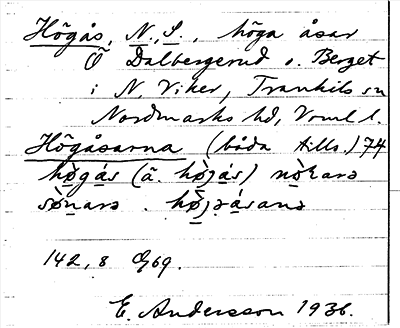 Högås, N., S., höga åsar
Ö Dalbergerud o. Berget
i N. Viker, Trankils sn
Nordmarks hd, Vrml. l.
Högåsarna (båda tills.) 74
hø̀gás (ä. hø̀jás) nòʀarə
sø̀narə . hø̀jəásanə
142, 8 Og69.
E. Andersson 1936.